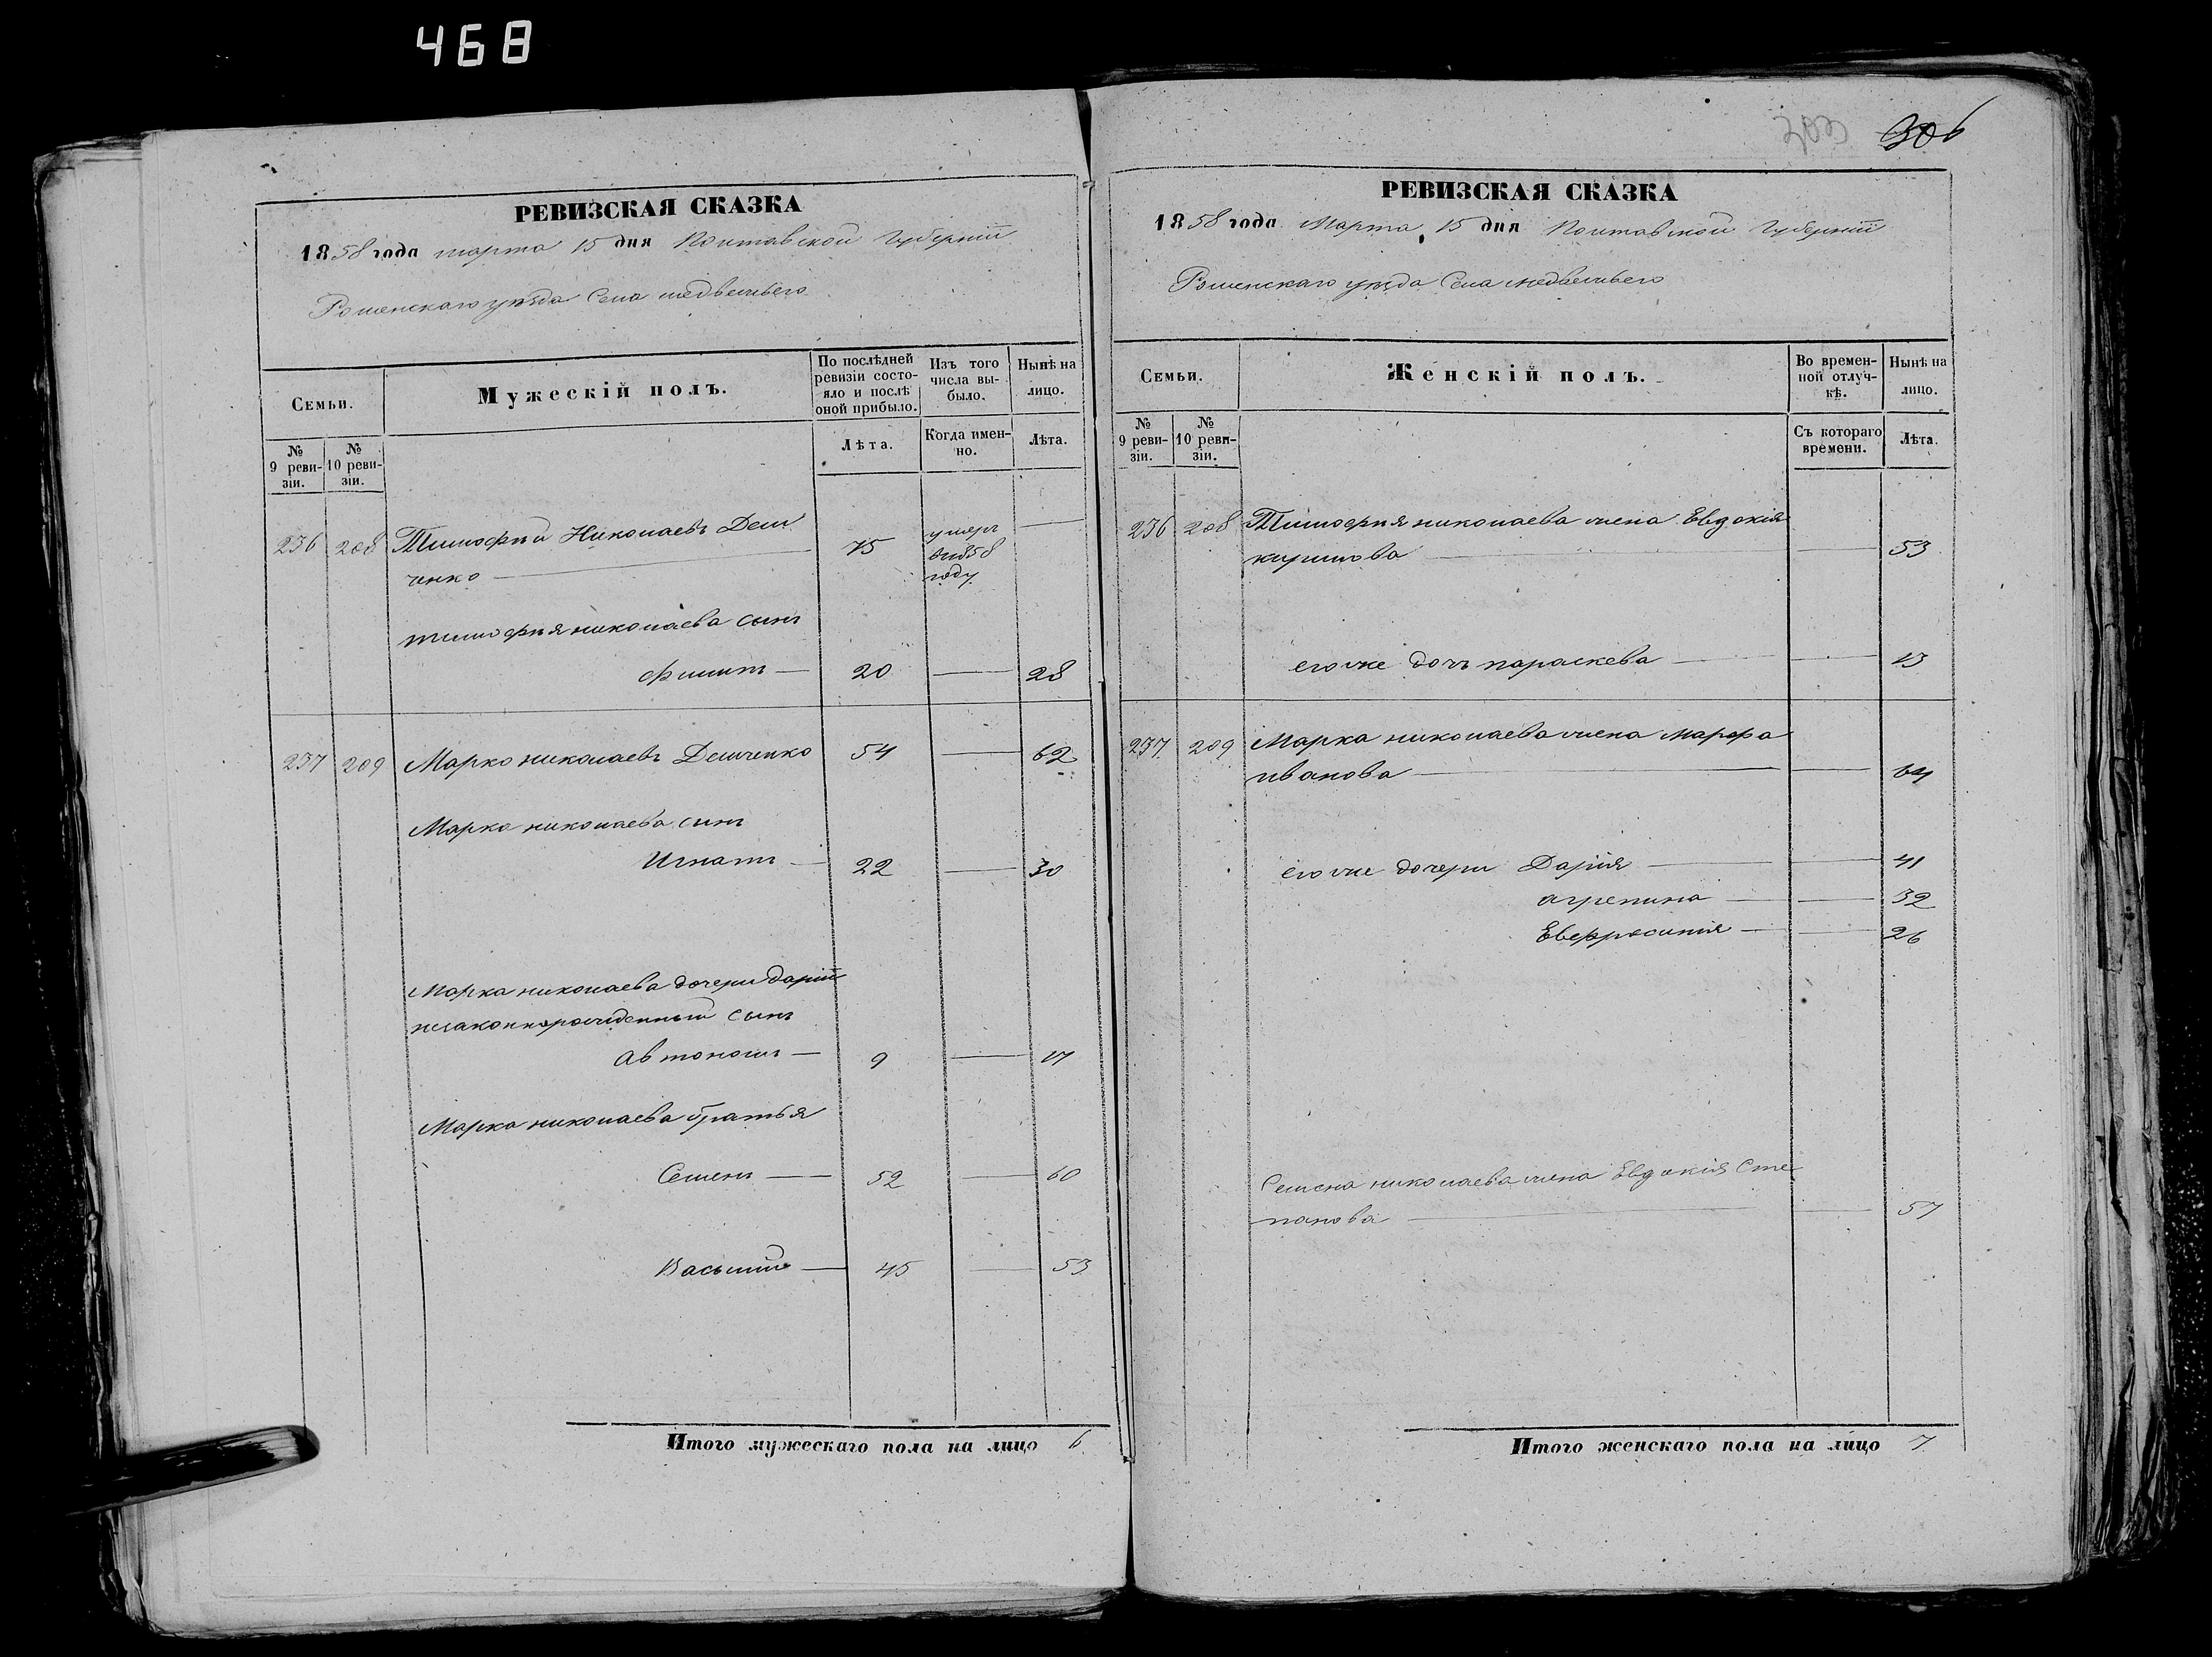 468
РЕВИЗСКАЯ СКАЗКА
1858 года марта 15 дня Полтавской Губерніи
Роменскаго уѣзда Села медвежьего
Семьи.
Мужескій полъ.
По послѣдней ревизіи состояло и послѣ оной прибыло.
Изъ того числа выбыло.
Нынѣ на лицо.
№ 9 ревизіи.
№ 10 ревизіи.
Лѣта.
Когда именно.
Лѣта.
236 208 Тимофѣй Николаевъ Дем 75 умеръ —
ченко — в 1858
году
тимофѣя николаева сынъ
филипъ — 20 — 28
237 209 Марко николаевъ Демченко 54 — 62
Марка николаева сынъ
Игнатъ — 22 — 30
Марка николаева дочери даріи
незаконнорожденный сынъ
автономъ — 9 — 17
Марка николаева братья
Семенъ — 52 — 60
Василий — 45 — 53
Итого мужескаго пола на лицо 6
306
РЕВИЗСКАЯ СКАЗКА
1858 года Марта 15 дня Полтавской Губерніи
Роменскаго уѣзда Села медвежьего
Семьи.
Женскій полъ.
Во временной отлучкѣ.
Нынѣ на лицо.
№ 9 ревизіи.
№ 10 ревизіи.
Съ котораго времени.
Лѣта.
236 208 Тимофѣя николаева жена Евдокія
кирилова — — 53
его же дочь параскева — — 13
237 209 Марка николаева жена марфа
иванова — — 64
его же дочери Дарія — — 41
агрепина — — 32
Евфросинія — — 26
Семена николаева жена Евдокія Сте
панова — — 57
Итого женскаго пола на лицо 7